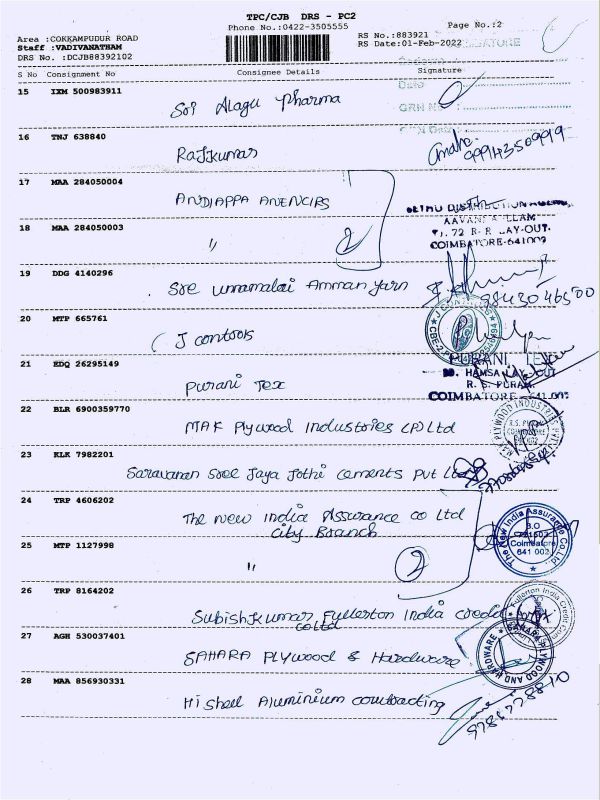 TPC/CJB DRS - PC2
Phone No.:0422-3505555
Page No.:2
Area :COKKAMPUDUR ROAD
Staff :VADIVANATHAM
DRS No. :DCJB88392102
RS No.:883921
RS Date:01-Feb-2022
S No Consignment No Consignee Details Signature
15 IXM 500983911
Sri Alagu Pharma
16 TNJ 638840
Rajkumar
09943509919
17 MAA 284050004
ANDIAPPA AGENCIES
18 MAA 284050003
"
2
DISTRIBUTION
72 R.P. LAY-OUT.
COIMBATORE-641002
19 DDG 4140296
Sree Unnamalai Amman Yarn
9843046500
20 MTP 665761
J contools
21 EDQ 26295149
Purani Tex
PURANI TEX
HAMSA LAY OUT
R. S. PURAM,
COIMBATORE - 641 002
22 BLR 6900359770
MAK Plywood Industries (P) Ltd
MAK PLYWOOD INDUSTRIES PVT
R.S. PURAM
COIMBATORE
23 KLK 7982201
Saravanan Sree Jaya Jothi cements Pvt Ltd
24 TRP 4606202
The New India Assurance co Ltd
City Branch
25 MTP 1127998
"
2
The New India Assurance Co.Ltd.
Coimbatore
641 002
26 TRP 8164202
Subishkumar Fullerton India credit
co Ltd
Fullerton India Credit Com
27 AGH 530037401
SAHARA Plywood & Hardware
SAHARA PLYWOOD AND HARDWARE
28 MAA 856930331
Hi shell Aluminium contracting